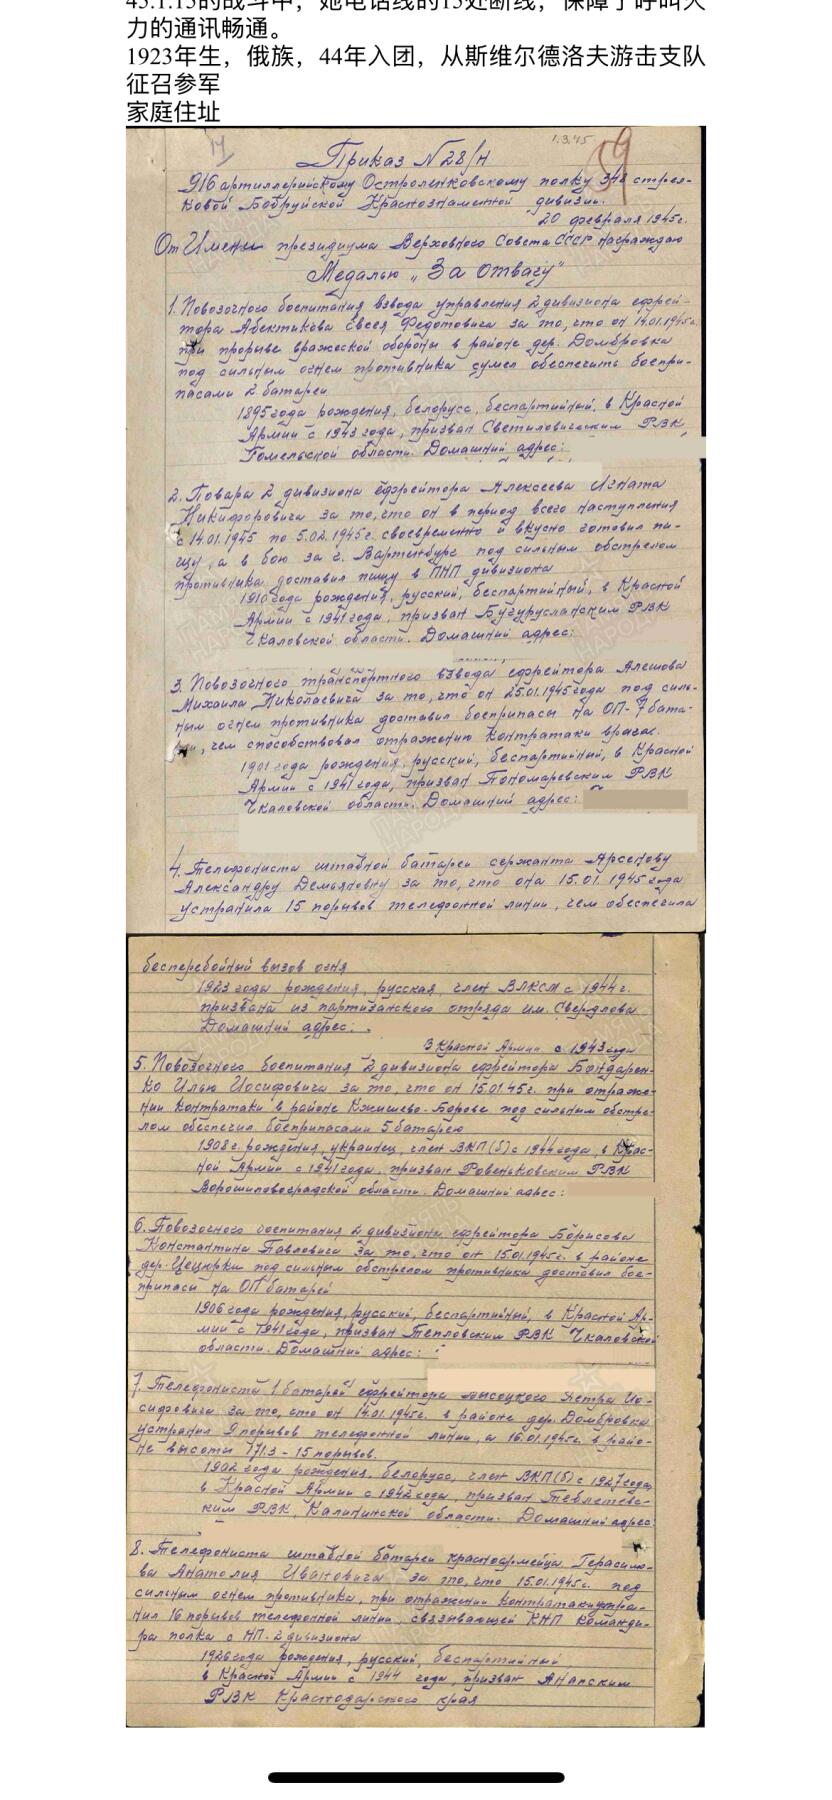 45.1.15的战斗中，她电话线的15处断线，保障了呼叫火
力的通讯畅通。
1923年生，俄族，44年入团，从斯维尔德洛夫游击支队
征召参军
家庭住址
1.3.45
Приказ №28/н
916 артиллерийскому Остроленковскому полку 348 стрел-
ковой Бобруйской Краснознаменной дивизии.
20 февраля 1945г.
От Имени президиума Верховного Совета СССР награждаю
Медалью „За отвагу"
1. Повозочного боепитания взвода управления 2 дивизиона ефрей-
тора Абектикова Евсея Федотовича за то, что он 14.01.1945г.
при прорыве вражеской обороны в районе дер. Домбровка
под сильным огнем противника сумел обеспечить боепри-
пасами 2 батареи
1895 года рождения, белорусс, беспартийный, в Красной
Армии с 1943 года, призван Светиловическим РВК
Гомельской области. Домашний адрес:
2. Повара 2 дивизиона ефрейтора Алексеева Игната
Никифоровича за то, что он в период всего наступления
с 14.01.1945 по 5.02.1945г. своевременно и вкусно готовил пи-
щу, а в бою за г. Вартенбург под сильным обстрелом
противника доставил пищу в ПНП дивизиона
1910 года рождения, русский, беспартийный, в Красной
Армии с 1941 года, призван Бугурусланским РВК
Чкаловской области. Домашний адрес:
3. Повозочного транспортного взвода ефрейтора Алешова
Михаила Николаевича за то, что он 25.01.1945 года под силь-
ным огнем противника доставил боеприпасы на ОП-7 бата-
реи, чем способствовал отражению контратаки врага.
1901 года рождения, русский, беспартийный, в Красной
Армии с 1941 года, призван Пономаревским РВК
Чкаловской области. Домашний адрес:
4. Телефониста штабной батареи сержанта Арсенову
Александру Демьяновну за то, что она 15.01.1945 года
устранила 15 порывов телефонной линии, чем обеспечила
бесперебойный вызов огня
1923 года рождения, русская, член ВЛКСМ с 1944 г.
призвана из партизанского отряда им. Свердлова
Домашний адрес:
В Красной Армии с 1943 года
5. Повозочного боепитания 2 дивизиона ефрейтора Бондарен-
ко Илью Иосифовича за то, что он 15.01.45г. при отраже-
нии контратаки в районе Кжишево-Борове под сильным обстре-
лом обеспечил боеприпасами 5 батарею
1908 г. рождения, украинец, член ВКП(б) с 1944 года, в Крас-
ной Армии с 1941 года, призван Ровеньковским РВК
Ворошиловоградской области. Домашний адрес:
6. Повозочного боепитания 2 дивизиона ефрейтора Борисова
Константина Павловича за то, что он 15.01.1945г. в районе
дер. Цецюрки под сильным обстрелом противника доставил бое-
припасы на ОП батарей
1906 года рождения, русский, беспартийный, в Красной Ар-
мии с 1941 года, призван Тепловским РВК Чкаловской
области. Домашний адрес:
7. Телефониста 1 батареи ефрейтора Высоцкого Петра Ио-
сифовича за то, что он 14.01.1945г. в районе дер. Домбровка
устранил 9 порывов телефонной линии, а 16.01.1945г. в райо-
не высоты 171.3 - 15 порывов.
1902 года рождения, белорусс, член ВКП(б) с 1927 года,
в Красной Армии с 1942 года, призван
РВК, Калининской области. Домашний адрес:
8. Телефониста штабной батареи красноармейца Герасимо-
ва Анатолия Ивановича за то, что 15.01.1945г. под
сильным огнем противника, при отражении контратаки устра-
нил 16 порывов телефонной линии связывающей КНП команди-
ра полка с НП-2 дивизиона
1926 года рождения, русский, беспартийный
в Красной Армии с 1944 года, призван Анапским
РВК Краснодарского края